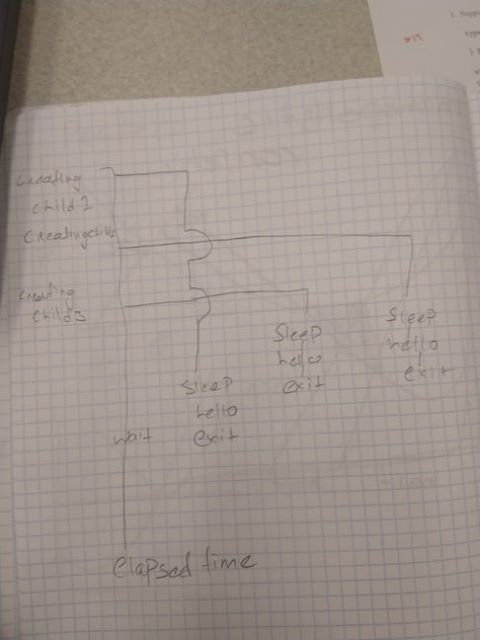 creating
child 1
creatingchild2
creating
child 3
Sleep
hello
exit
Sleep
hello
exit
Sleep
hello
exit
wait
elapsed time